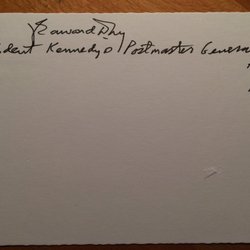 J Edward Day
ident Kennedy's Postmaster Genera